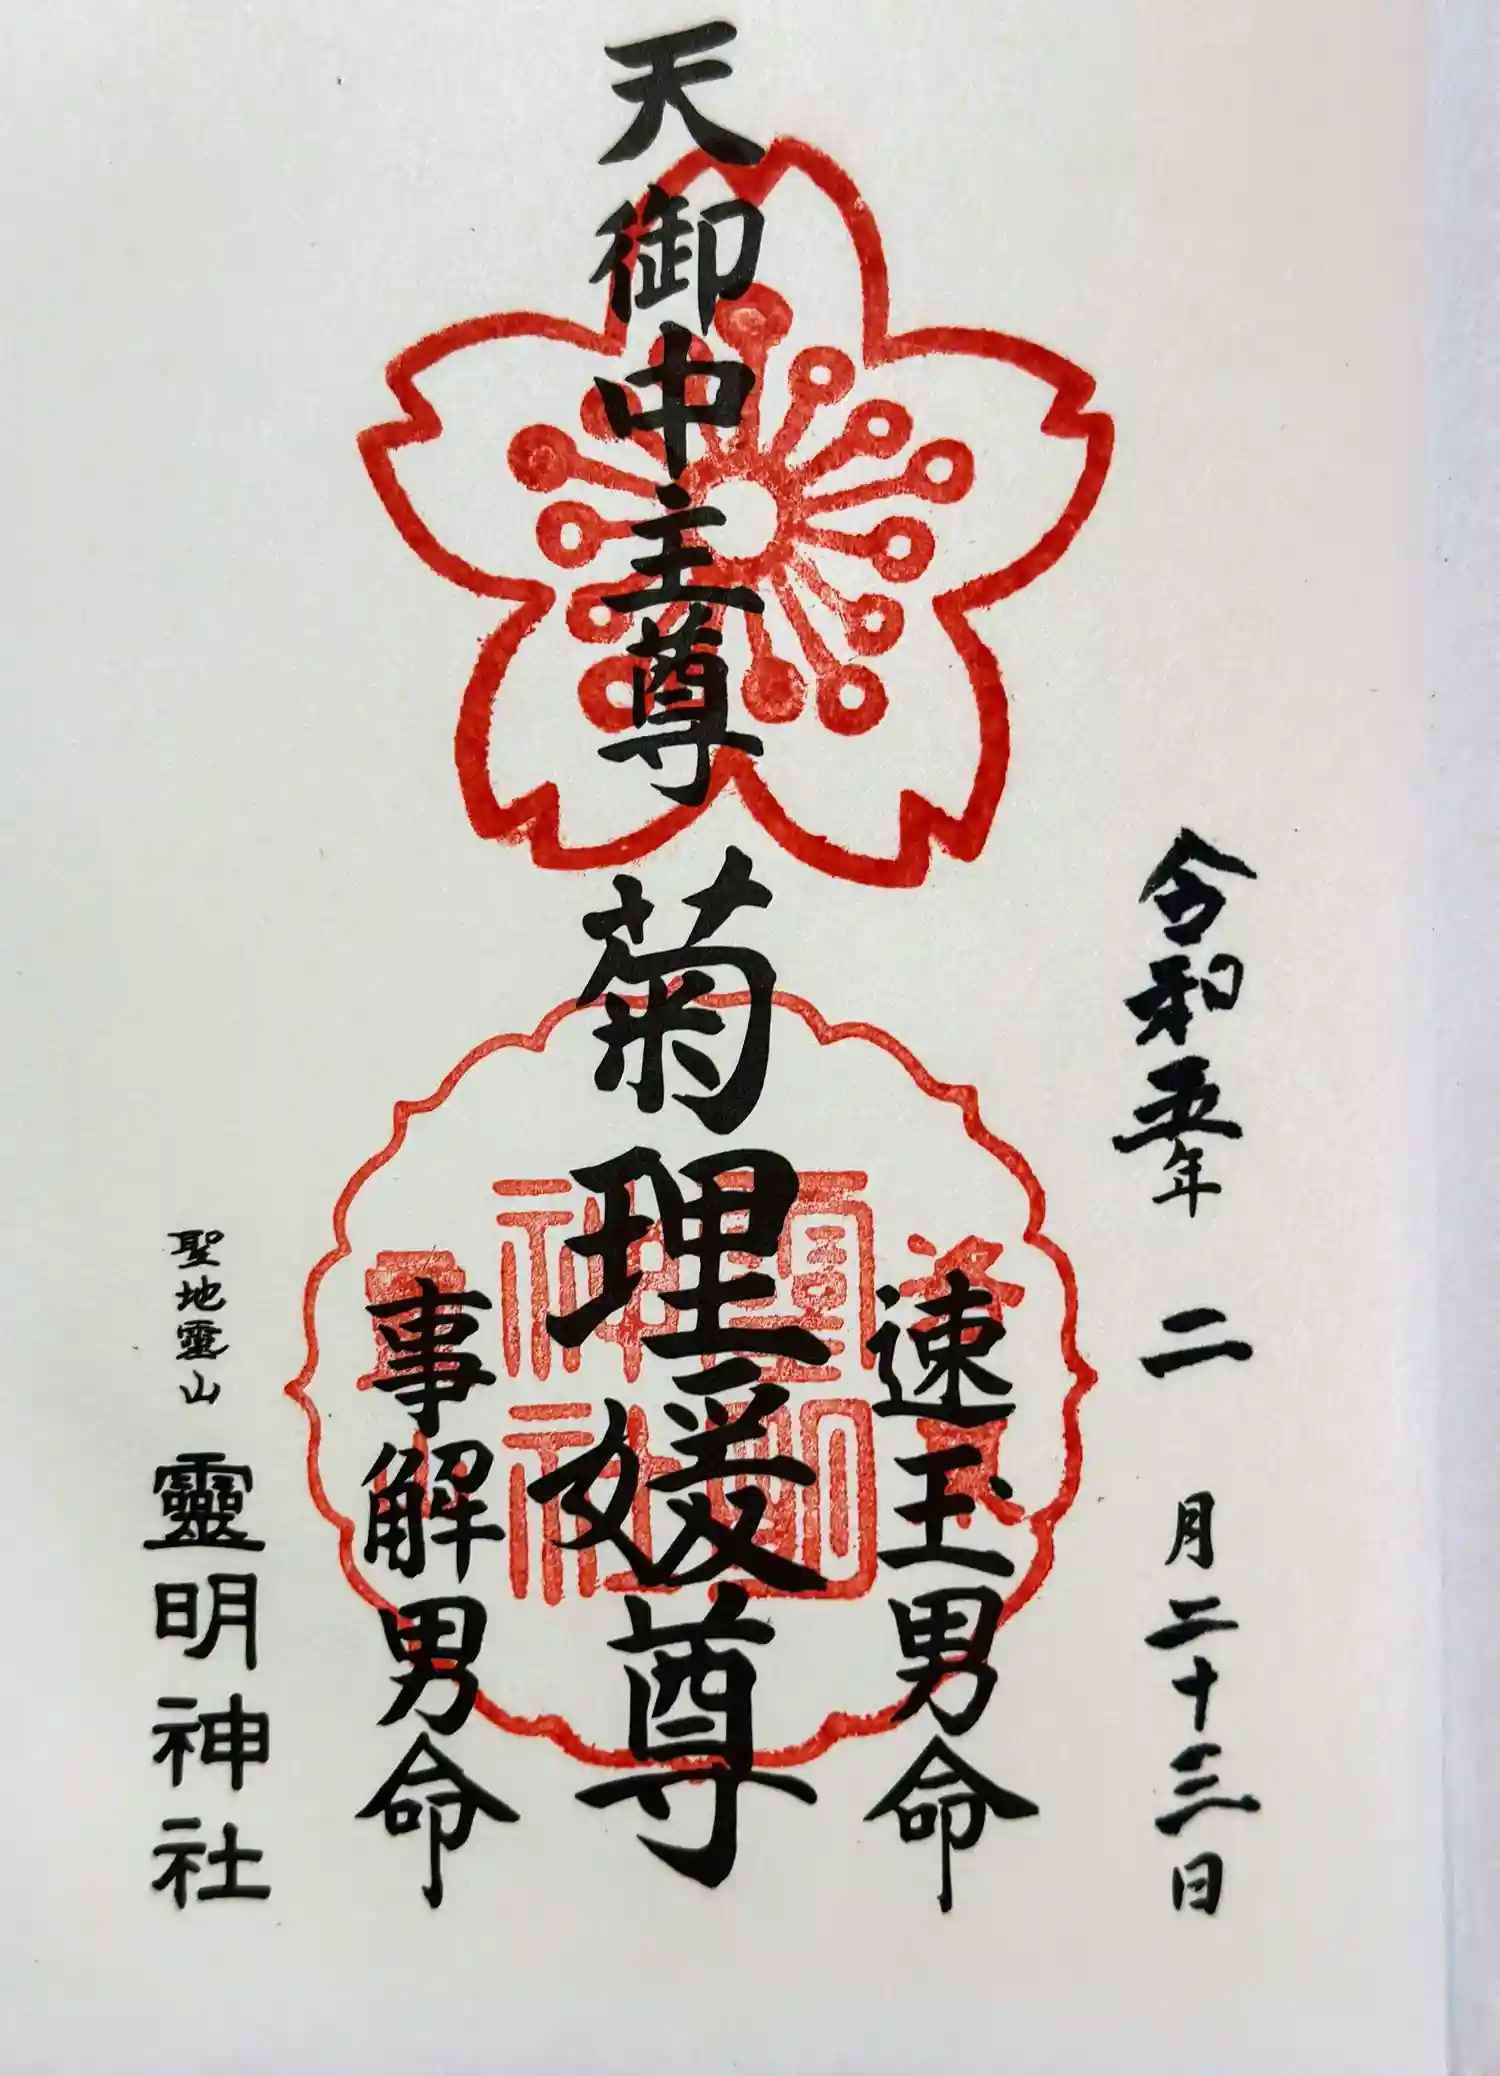 令和五年 二月二十三日
速玉男命
天御中主尊 菊理媛尊
事解男命
聖地霊山 靈明神社